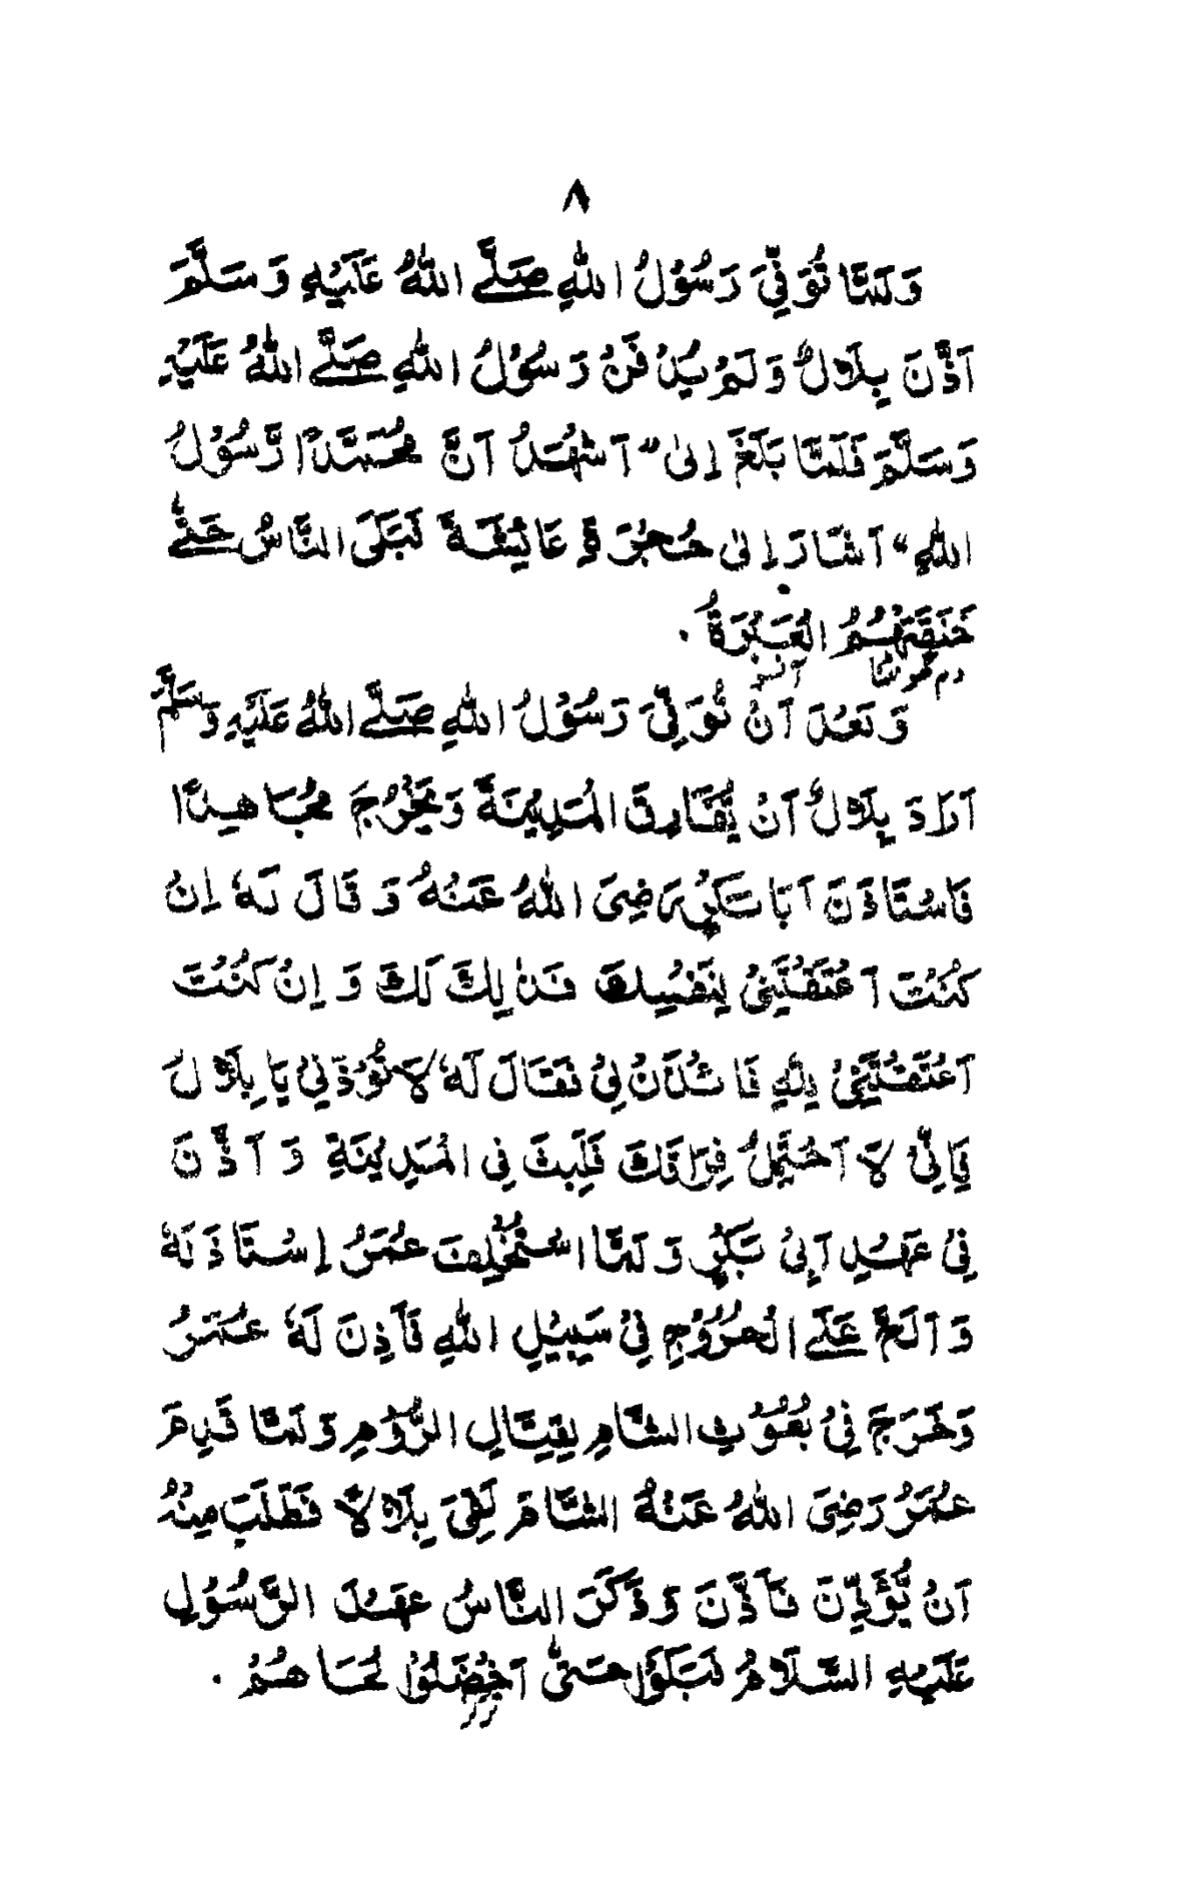 ٨
وَلَمَّا تُوَفِّيَ رَسُوْلُ اللهِ صَلَّے اللهُ عَلَيْهِ وَسَلَّمَ
اَذَّنَ بِلَالٌ وَلَمْ يُدْفَنْ رَسُوْلُ اللهِ صَلَّے اللهُ عَلَيْهِ
وَسَلَّمَ فَلَمَّا بَلَغَ اِلٰى "اَشْهَدُ اَنَّ مُحَمَّدًا رَّسُوْلُ
اللهِ" اَشَارَ اِلٰى حُجْرَةِ عَائِشَةَ فَبَكَى النَّاسُ حَتّٰے
خَنَقَتْهُمُ الْعَبْرَةُ .
دم گھونٹنا آنسو
وَبَعْدَ اَنْ تُوَفِّيَ رَسُوْلُ اللهِ صَلَّے اللهُ عَلَيْهِ وَسَلَّمَ
اَرَادَ بِلَالٌ اَنْ يُّفَارِقَ الْمَدِيْنَةَ وَيَخْرُجَ مُجَاهِدًا
فَاسْتَاذَنَ اَبَا بَكْرٍ رَضِيَ اللهُ عَنْهُ وَقَالَ لَهٗ اِنْ
كُنْتَ اَعْتَقْتَنِيْ لِنَفْسِكَ فَذٰلِكَ لَكَ وَاِنْ كُنْتَ
اَعْتَقْتَنِيْ لِلّٰهِ فَائْذَنْ لِيْ فَقَالَ لَهٗ لَا تُؤْذِنِيْ يَا بِلَالُ
فَاِنِّيْ لَا اَحْتَمِلُ فِرَاقَكَ فَلَبِثَ فِى الْمَدِيْنَةِ وَاَذَّنَ
فِيْ عَهْدِ اَبِيْ بَكْرٍ وَلَمَّا اسْتُخْلِفَ عُمَرُ اِسْتَاذَنَهٗ
وَاَلَحَّ عَلَے الْخُرُوْجِ فِيْ سَبِيْلِ اللهِ فَاَذِنَ لَهٗ عُمَرُ
وَخَرَجَ فِيْ بُعُوْثِ الشَّامِ لِقِتَالِ الرُّوْمِ وَلَمَّا قَدِمَ
عُمَرُ رَضِيَ اللهُ عَنْهُ الشَّامَ لَقِيَ بِلَالًا فَطَلَبَ مِنْهُ
اَنْ يُّؤَذِّنَ فَاَذَّنَ وَذَكَرَ النَّاسُ عَهْدَ الرَّسُوْلِ
عَلَيْهِ السَّلَامُ فَبَكَوْا حَتّٰى اَخْضَلُوْا لُحَاهُمْ .